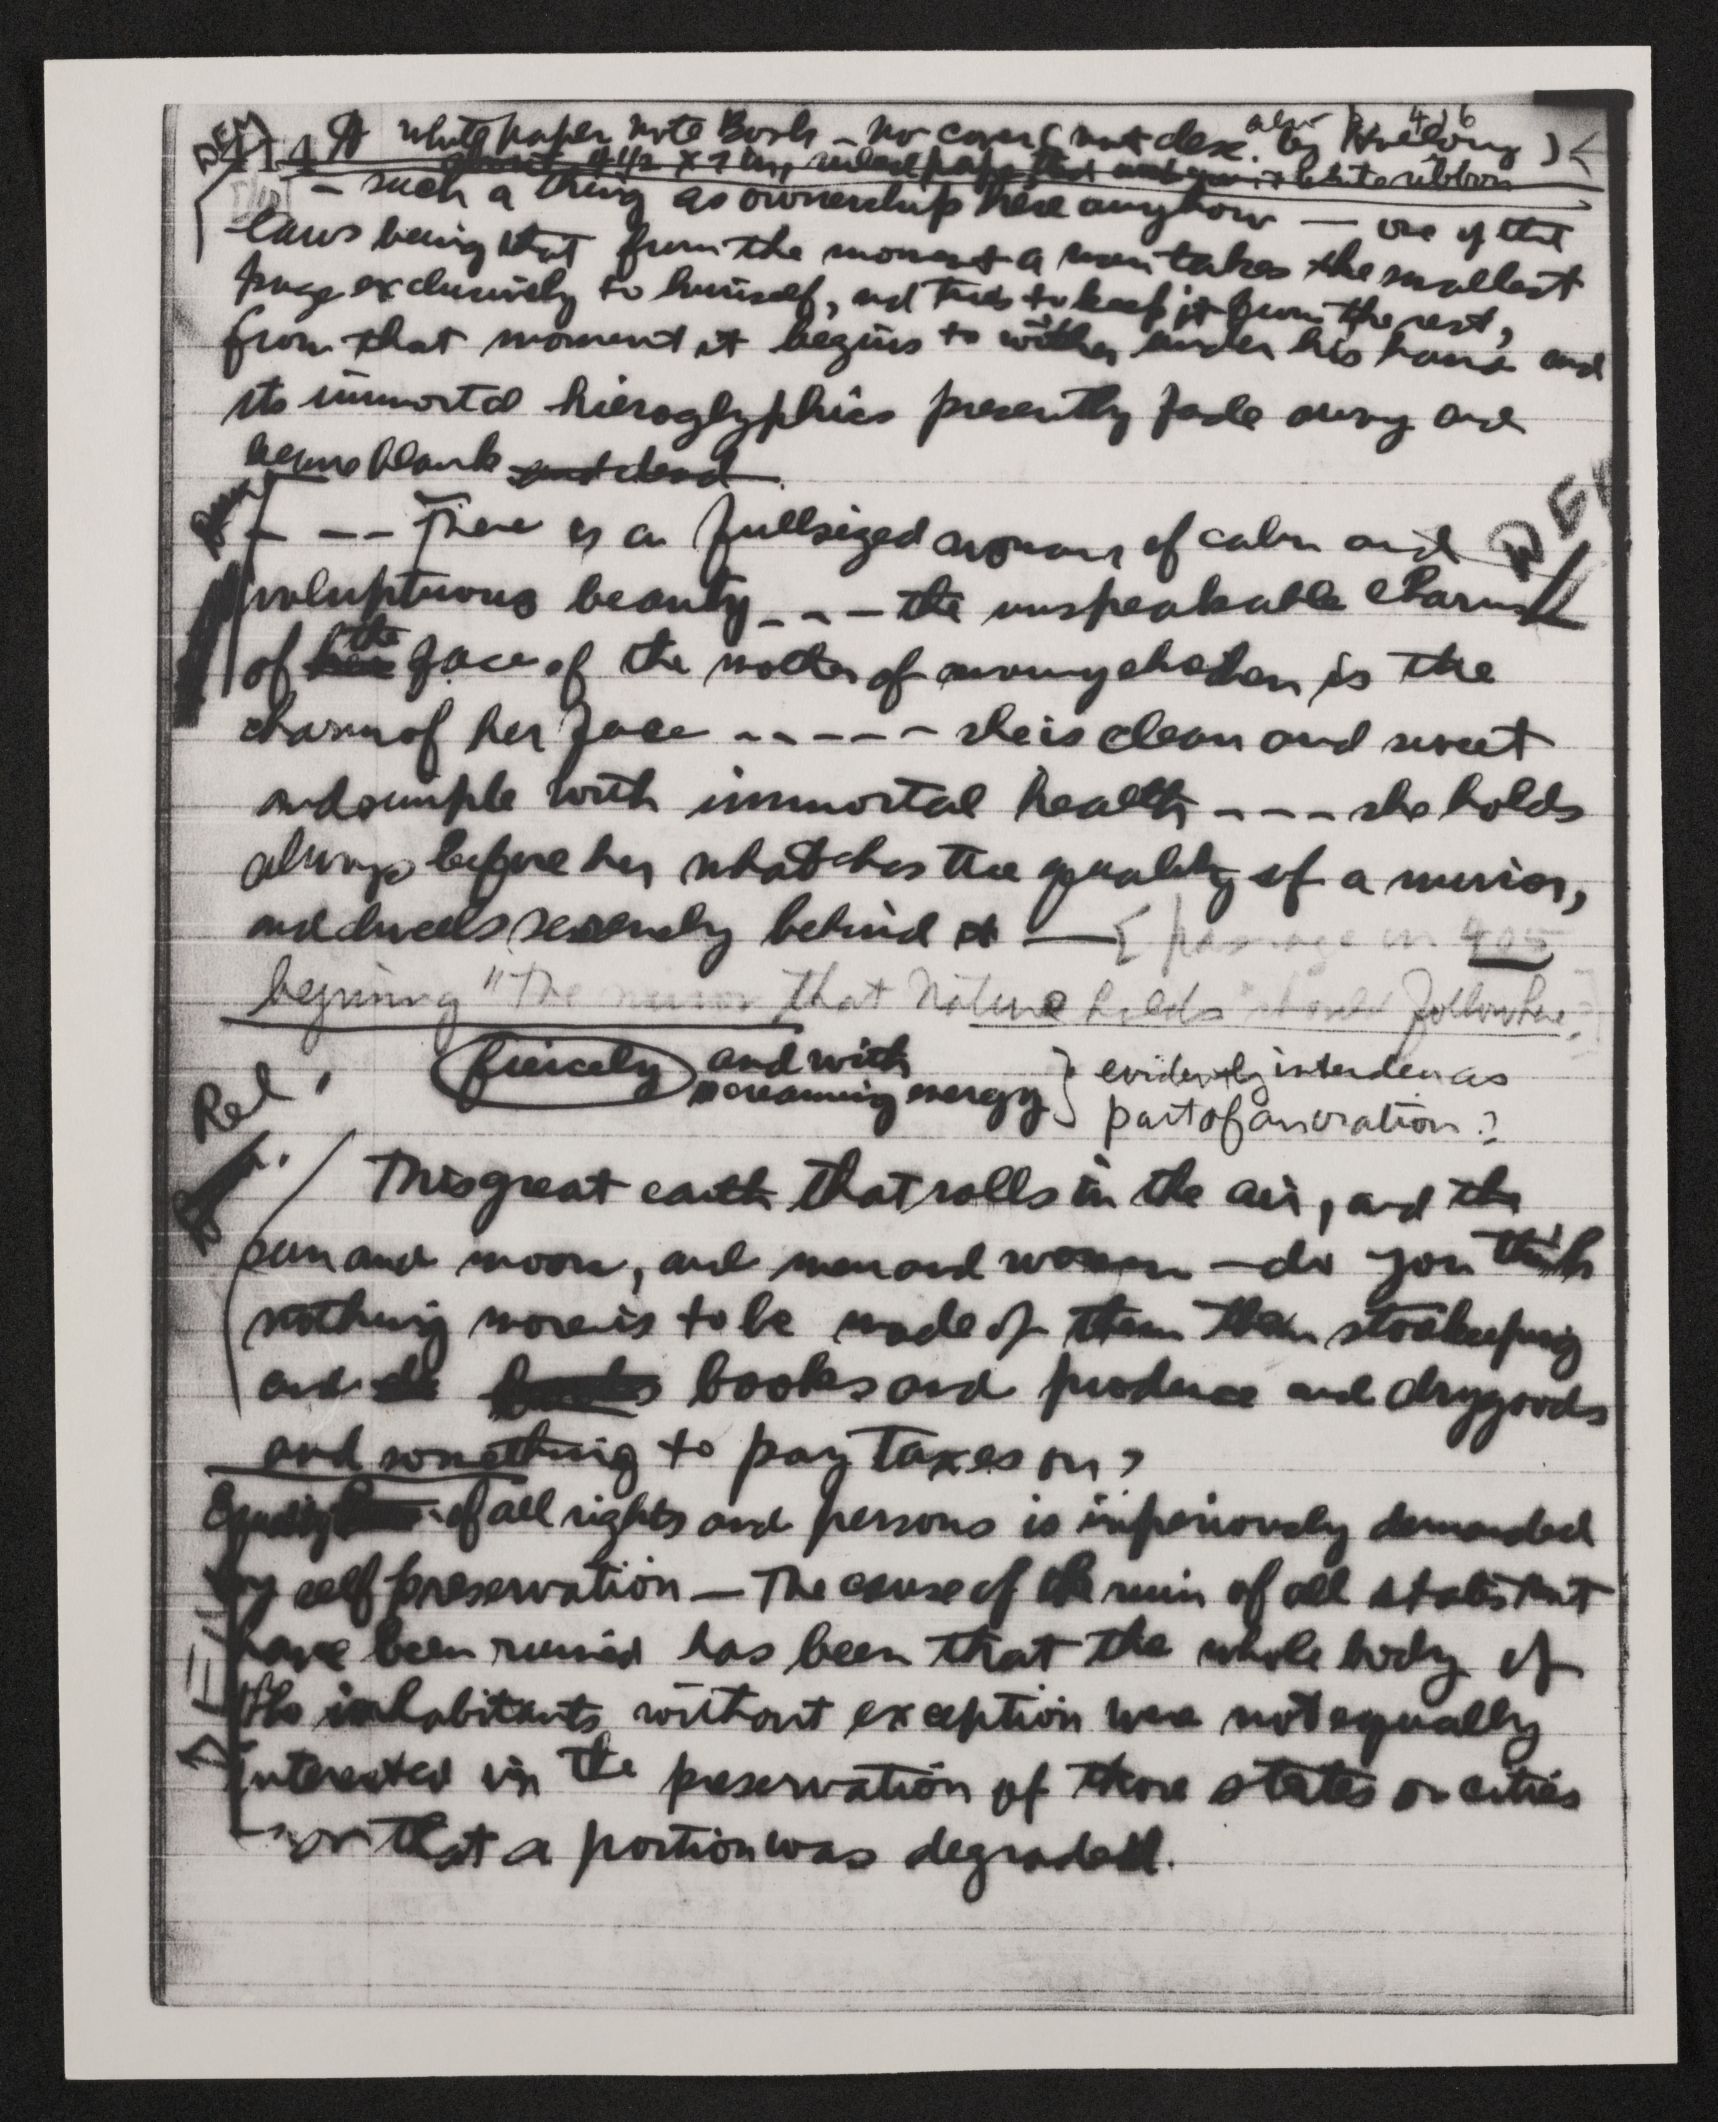 DEM
414 A white paper note Book - no cover (not desc. by Holloway)
about 4 1/2 x 7 in, ruled paper tied white ribbon
- such a thing as ownership here anyhow — one of the
laws being that from the moment a man takes the smallest
page exclusively to himself, and tries to keep it from the rest,
from that moment it begins to wither under his hand and
its immortal hieroglyphics presently fade away and
become blank and dead.
- -- There is a fullsized woman of calm and
DEM
voluptuous beauty - - - the unspeakable charm
of her the face of the mother of many children is the
charm of her face - - - - - she is clean and sweet
and simple with immortal health - - - she holds
always before her what has the quality of a mirror,
and dwells serenely behind it — { passage in 405
beginning "The mirror that Nature holds" should follow here.]
Rel. fiercely and with
screaming energy } evidently intended as
part of an oration?
This great earth that rolls in the air, and the
sun and moon, and men and women - do you think
nothing more is to be made of them than storekeeping
and books books and produce and drygoods
and something to pay taxes on?
Equality of all rights and persons is imperiously demanded
by self preservation — The cause of the ruin of all states that
have been ruined has been that the whole body of
the inhabitants without exception was not equally
interested in the preservation of those states or cities
- or that a portion was degraded.